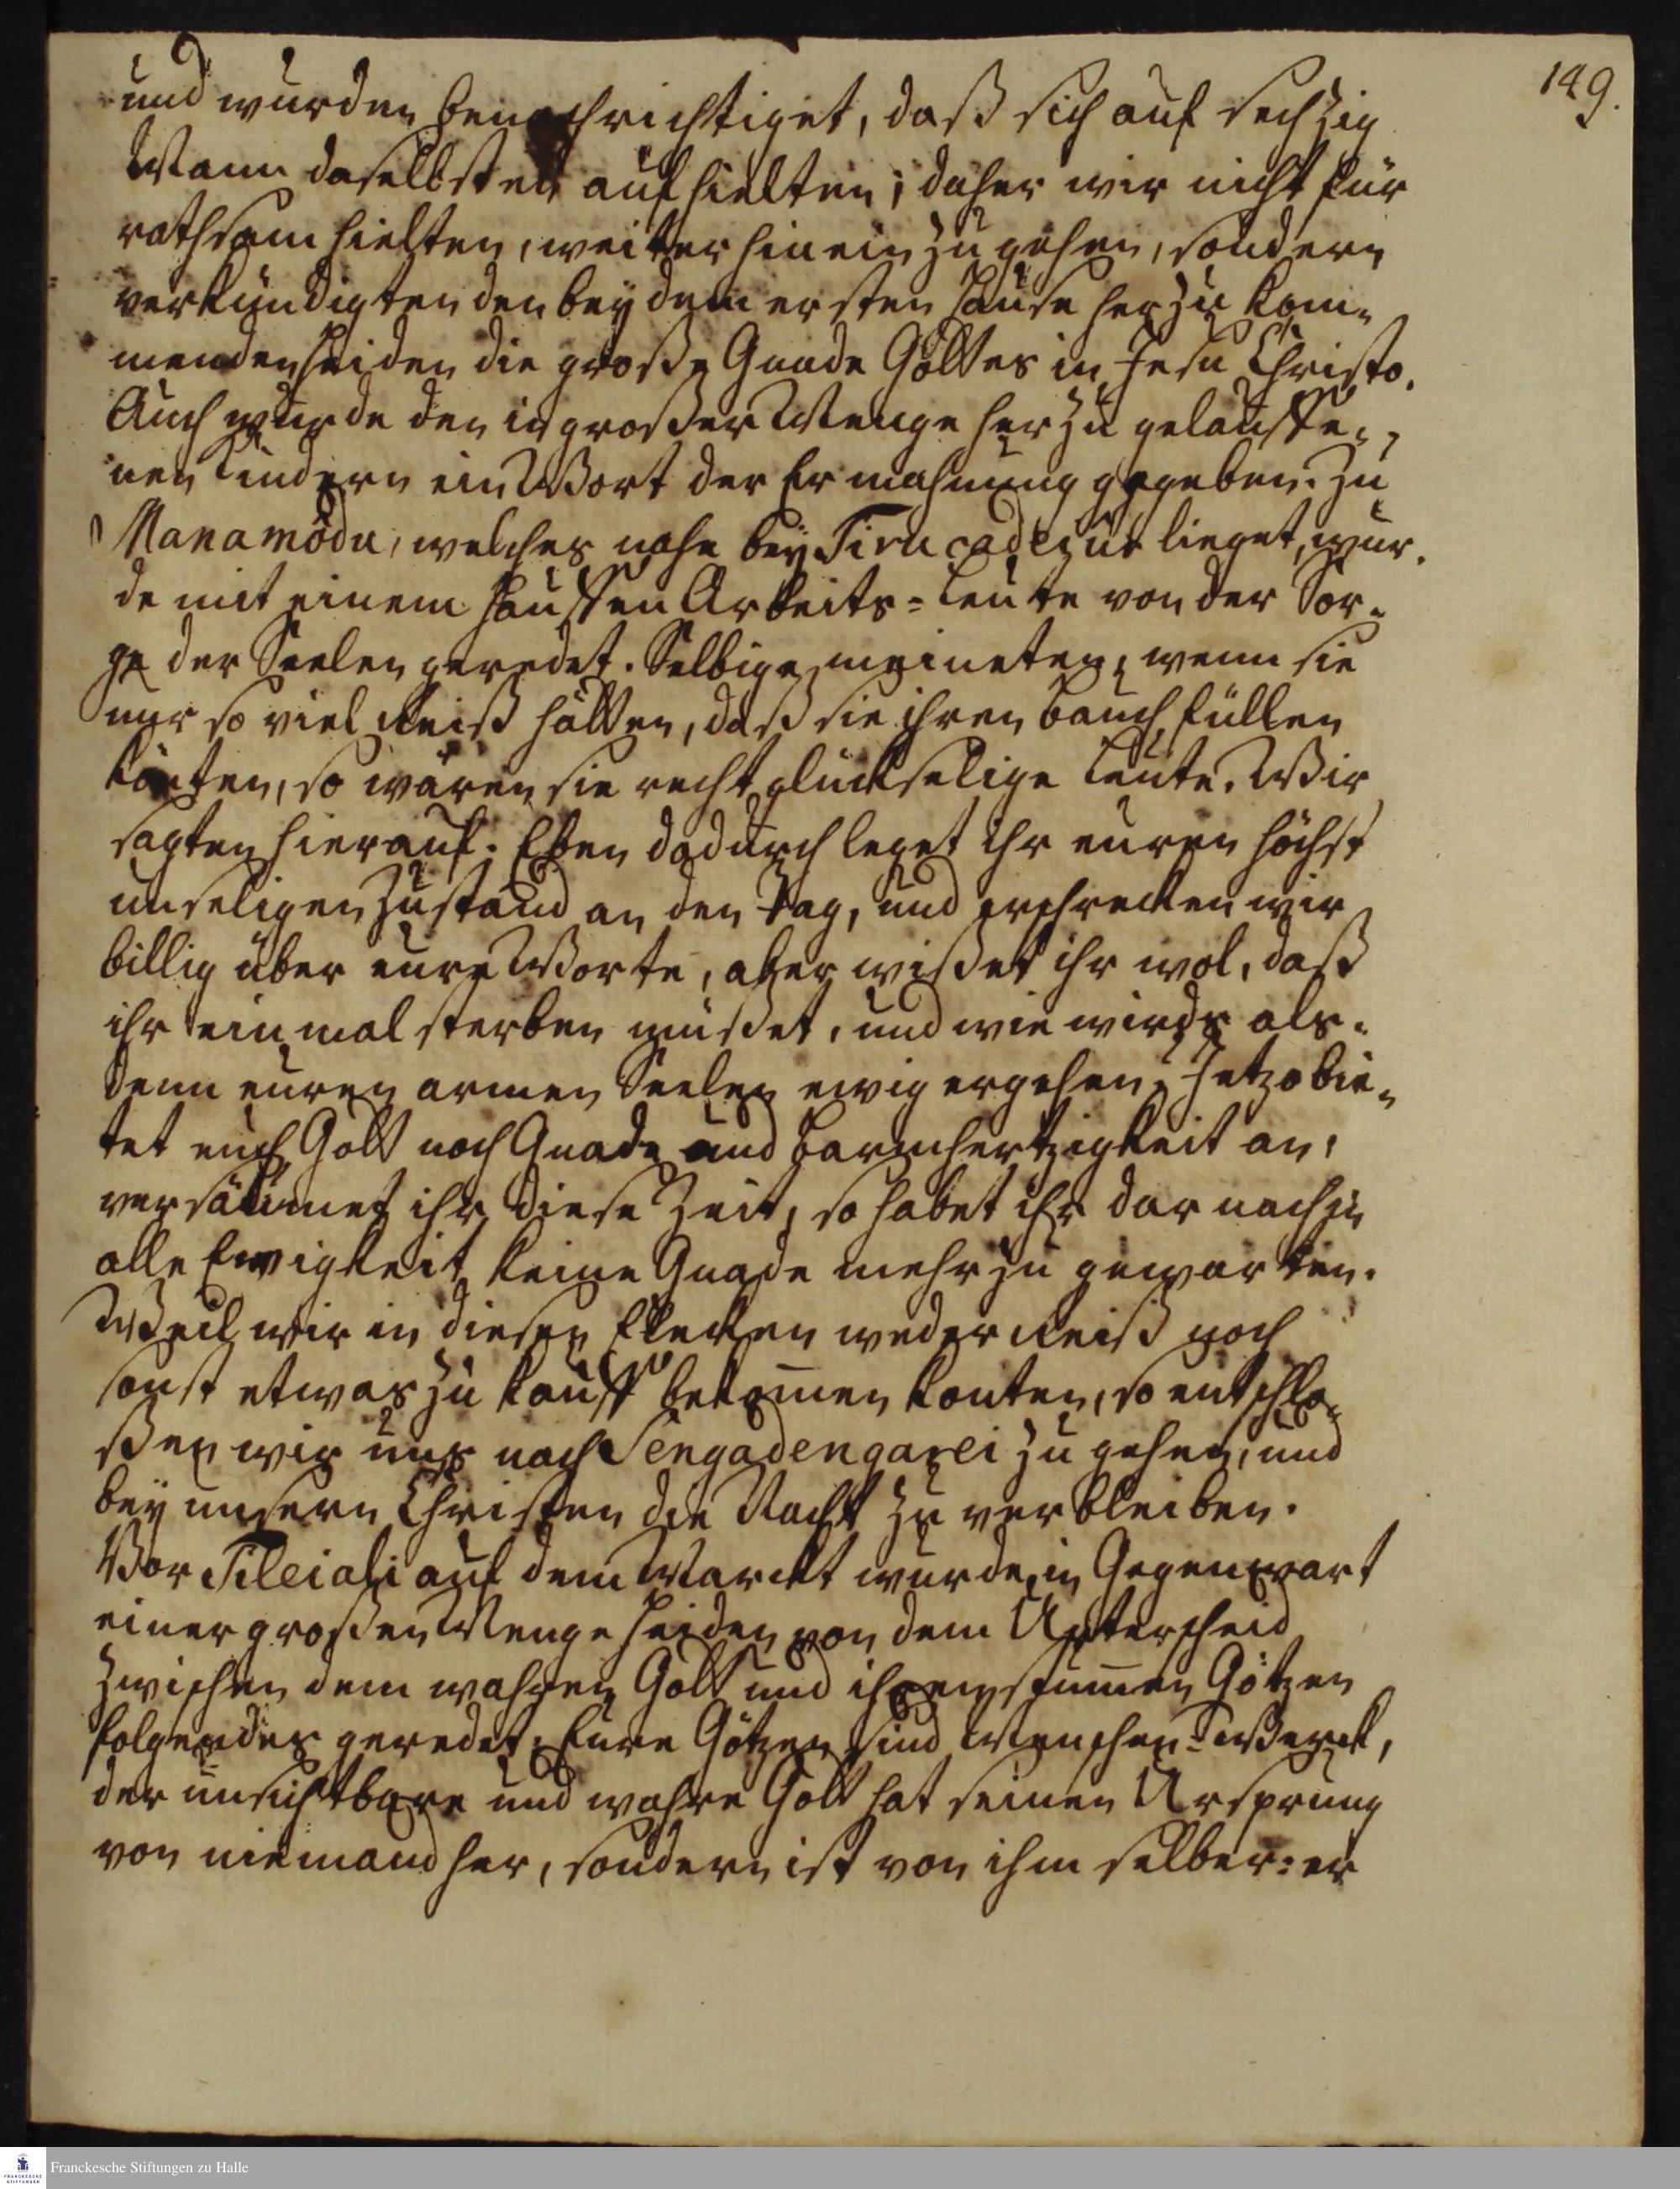 149.
und wurden benachrichtiget, daß sich auf sechzig
Mann daselbsten aufhielten; daher wir nicht für
rathsam hielten, weiter hinein zu gehen, sondern
verkündigten den bey dem ersten Hause herzu kom-
menden Heiden die große Gnade Gottes in Jesu Christo.
Auch wurde den in großer Menge herzu gelauffe-
nen Kindern ein Wort der Ermahnung gegeben. Zu
Manamôdu, welches nahe bey Tirucadeiur lieget, wur-
de mit einem Hauffen Arbeits-Leute von der Sor-
ge der Seelen geredet. Selbige meineten, wenn sie
nur so viel Reiß hätten, daß sie ihren Bauch füllen
könten, so wären sie recht glückselige Leute. Wir
sagten hierauf: Eben dadurch leget ihr euren höchst
unseligen Zustand an den Tag, und erschrecken wir
billig über eure Worte, aber wißet ihr wol, daß
ihr einmal sterben müßet, und wie wirds als-
denn euren armen Seelen ewig ergehen? Jetzo bie-
tet euch Gott noch Gnade und Barmhertzigkeit an,
versäumet ihr diese Zeit, so habet ihr darnach in
alle Ewigkeit keine Gnade mehr zu gewarten.
Weil wir in diesen Flecken weder Reiß noch
sonst etwas zu kauff bekom̄en konten, so entschlo-
ßen wir uns nach Sengadengarei zu gehen, und
bey unsern Christen die Nacht zu verbleiben.
Vor Tileiali auf dem Marckt wurde in Gegenwart
einer großen Menge Heiden von dem Unterscheid
zwischen dem wahren Gott und ihren stum̄en Götzen
folgendes geredet: Eure Götzen sind Menschen-Werck,
der unsichtbare und wahre Gott hat seinen Ursprung
von niemand her, sondern ist von ihm selber: er
Franckesche Stiftungen zu Halle
FRANCKESCHE
STIFTUNGEN